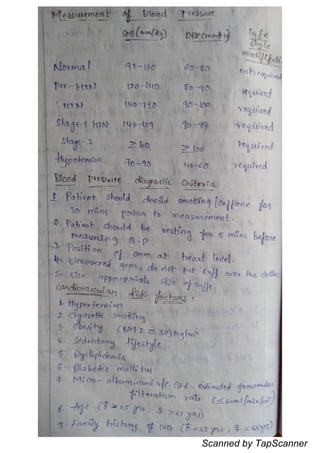 Measurement of Blood Pressure
SBP (mm/Hg) DBP (mmHg) Life style modification
Normal 90-120 60-80 not required
Pre-HTN 120-140 80-90 required
HTN 140-190 90-100 required
Stage-1 HTN 140-159 90-99 required
Stage-2 ≥ 60 ≥ 100 required
Hypotension 70-90 40-60 required
Blood Pressure diagnostic Criteria
1. Patient should avoid smoking / caffeine for
30 mins prior to measurement.
2. Patient should be resting for 5 mins before
measuring B.P.
3. Position of arm at heart level.
4. Uncovered arm, do not put cuff over the clothes
5. Use appropriate size of cuff.
Cardiovascular Risk factors:
1. Hypertension
2. Cigarette smoking
3. Obesity (BMI ≥ 30) kg/m²
4. Sedentary lifestyle.
5) Dyslipidemia
6- Diabetes mellitus
7. Micro-albuminuria/c GFR- estimated glomerular
filteration rate (≤60ml/min/m²)
8. Age (♂ >55 yrs, ♀ >65 yrs)
9. Family history of CVD (♂ <55 yrs, ♀ <65 yrs)
Scanned by TapScanner